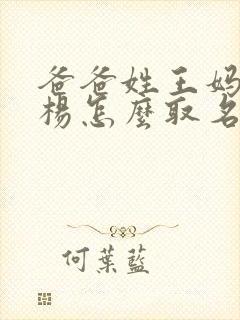 爸爸姓王妈
楊怎麼取名
何葉藍